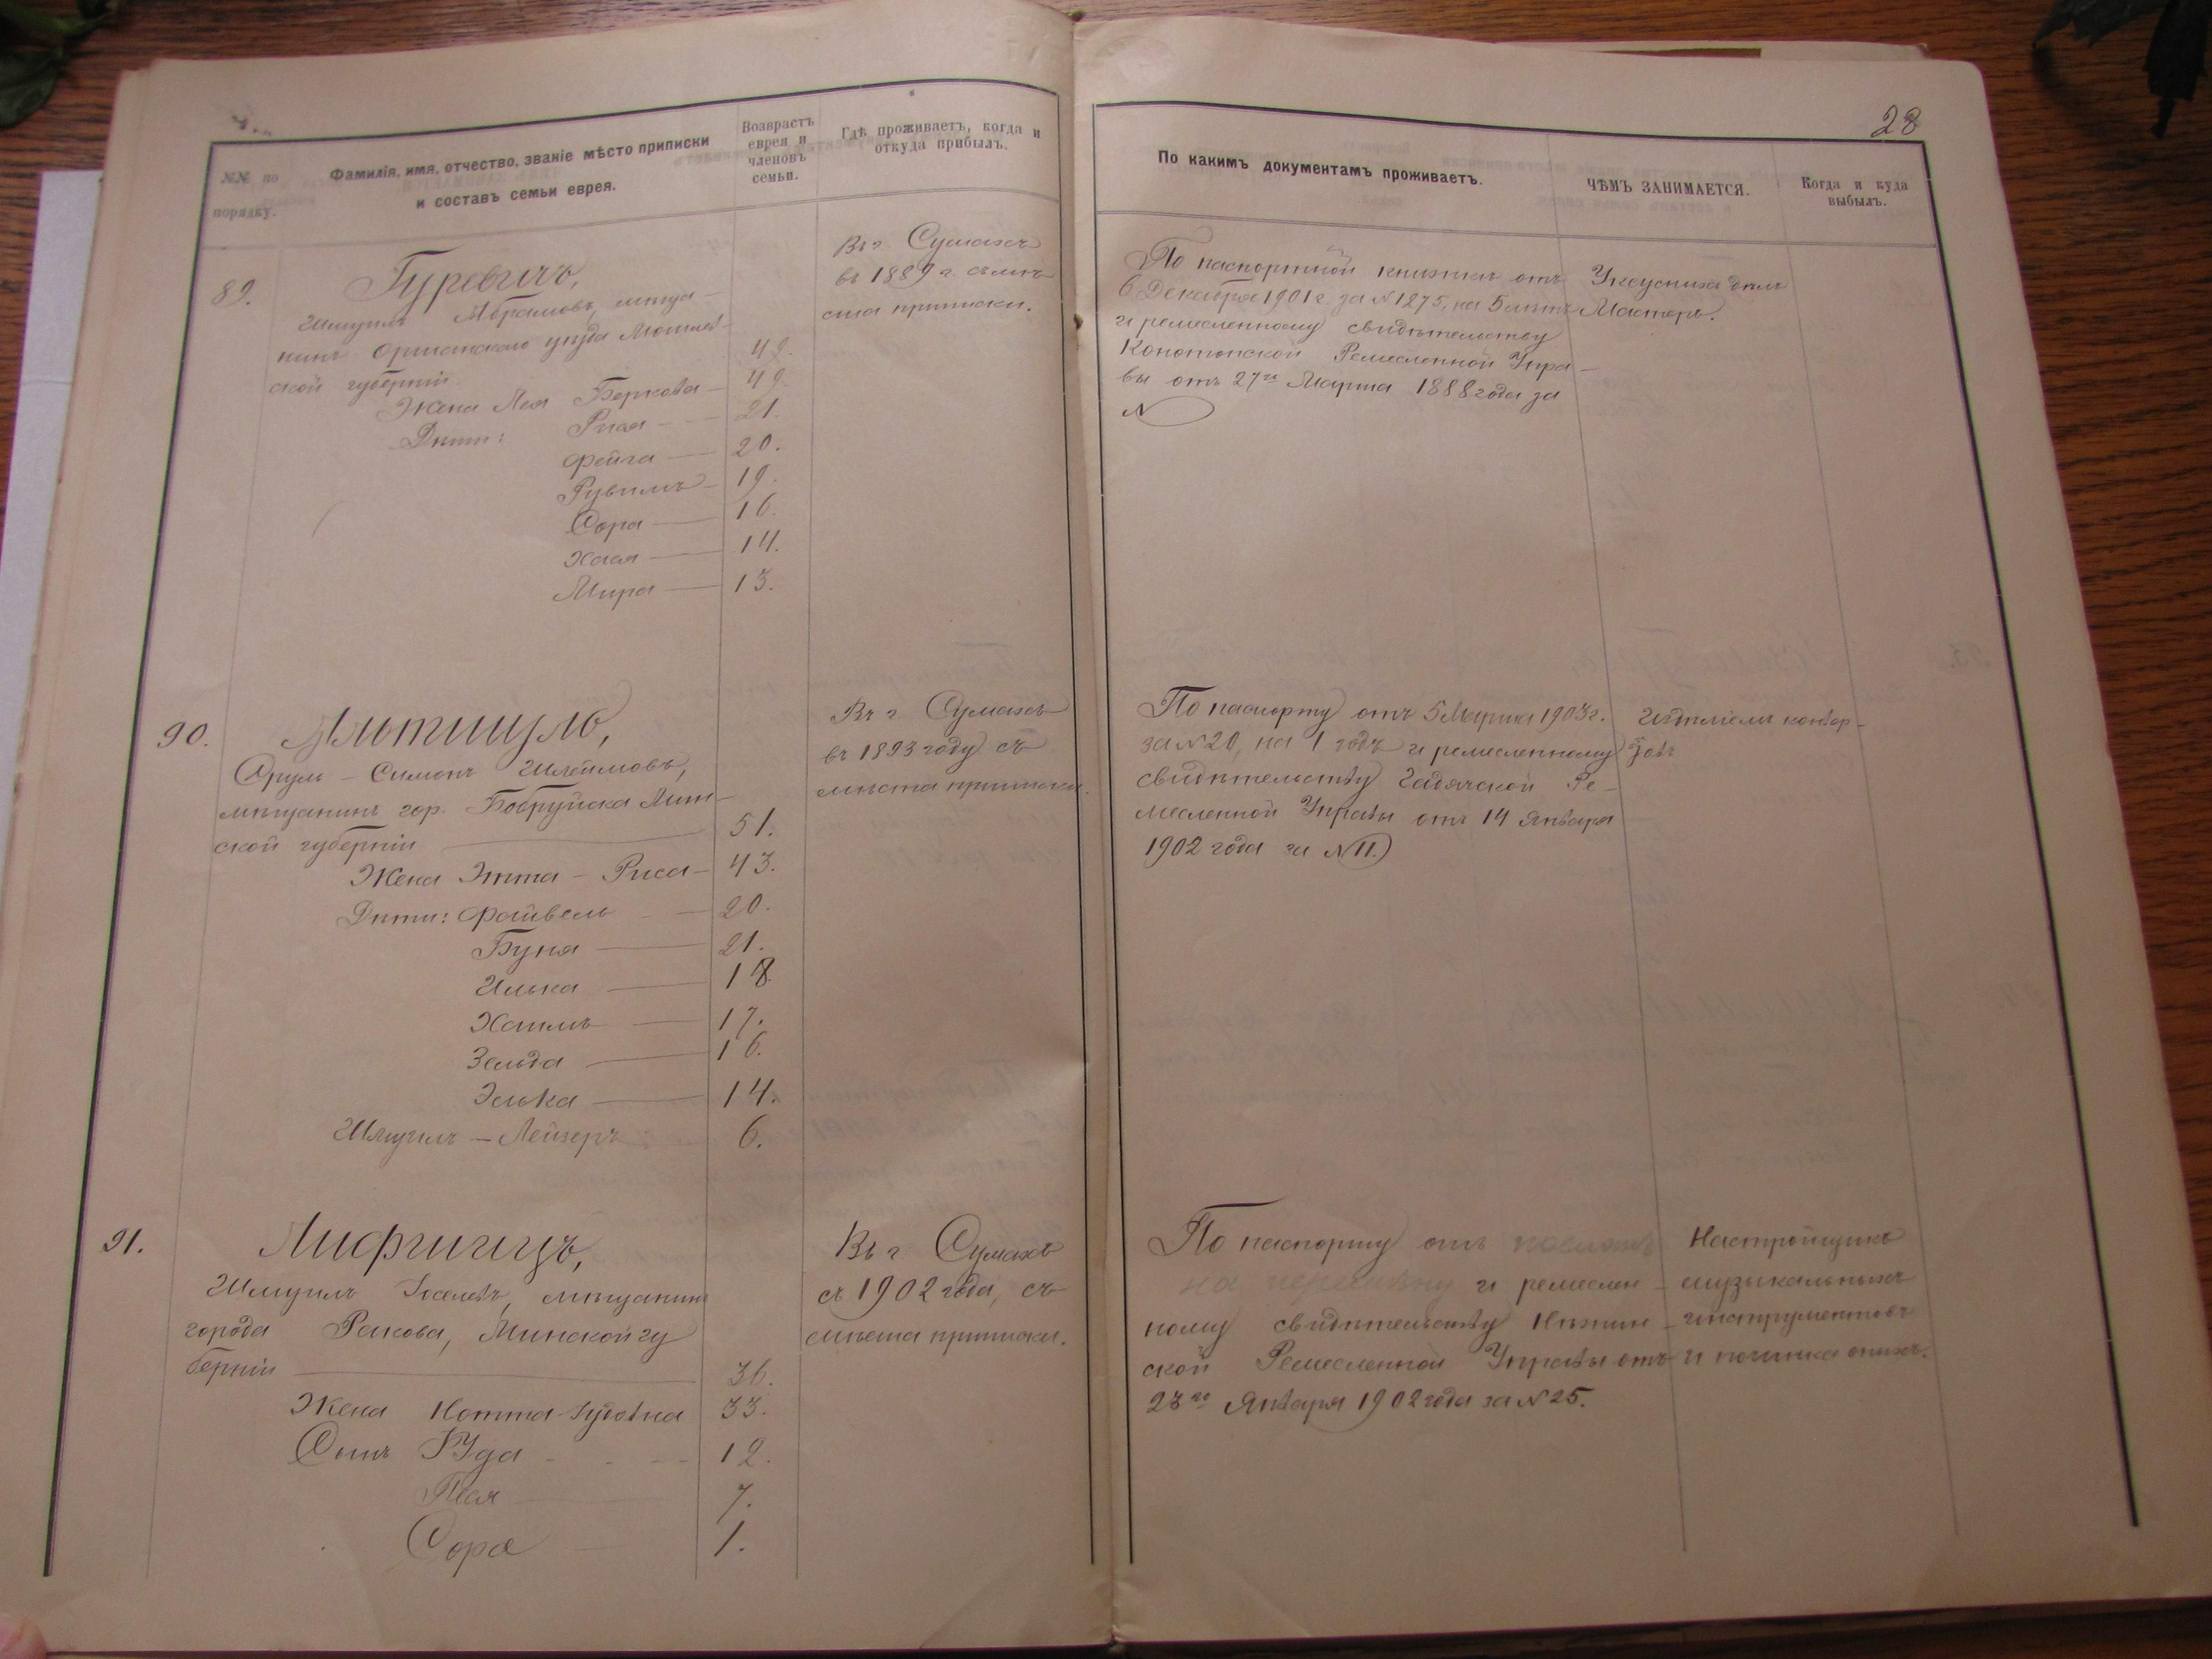 28
№№ по порядку.
Фамилія, имя, отчество, званіе мѣсто приписки
и составъ семьи еврея.
Возврастъ
еврея и
членовъ
семьи.
Гдѣ проживаетъ, когда и
откуда прибылъ.
По какимъ документамъ проживаетъ.
ЧѢМЪ ЗАНИМАЕТСЯ.
Когда и куда
выбылъ.
89.
Гуревичъ,
Шмуилъ Абрамовъ, мѣща-
нинъ Оршанскаго уѣзда Могилев-
ской губерніи 49.
Жена Лея Беркова — 49.
Дѣти: Рися — 21.
Фейга — 20.
Рувимъ — 19.
Сора — 16.
Хася — 14.
Мира — 13.
Въ г. Сумахъ
въ 1889 г. съ мѣ-
ста приписки.
По паспортной книжкѣ отъ
6 Декабря 1901 г. за № 1275, на 5 лѣтъ
и ремесленному свидѣтельству
Конотопской Ремесленной Упра-
вы отъ 27го Марта 1888 года за
№
Уксуснихъ дѣлъ
Мастеръ.
90.
Альтшулъ,
Срулъ - Симонъ Шлеймовъ,
мѣщанинъ гор. Бобруйска Мин-
ской губерніи — 51.
Жена Этта - Риса — 43.
Дѣти: Файвель — 20.
Буня — 21.
Илька — 18.
Хаимъ — 17.
Зельда — 16.
Элька — 14.
Шмуилъ - Лейзеръ 6.
Въ г. Сумахъ
въ 1893 году съ
мѣста приписки.
По паспорту отъ 5 Марта 1903 г.
за № 20, на 1 годъ и ремесленному
свидѣтельству Гадячской Ре-
месленной Управы отъ 14 Января
1902 года за № 11.
91.
Лифшицъ,
Шмуилъ Іоселевъ, мѣщанинъ
города Ракова, Минской гу
берніи — 36.
Жена 33.
Сынъ Іуда 12.
7.
Сора — 1.
Въ г. Сумахъ
съ 1902 года, съ
мѣста приписки.
По паспорту отъ посланъ
на перемѣну и ремеслен-
ному свидѣтельству Нѣжин-
ской Ремесленной Управы отъ
23го Января 1902 года за № 25.
Настройщикъ
музыкальныхъ
инструментовъ
и починка оныхъ.